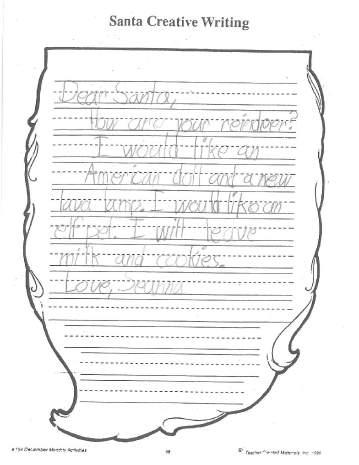 Santa Creative Writing
Dear Santa,
How are your reindeer?
I would like an
American doll and a new
lava lamp. I would like an
elf pet. I will leave
milk and cookies.
Love, Seanna
December Monthly Activities
Teacher Created Materials, Inc.